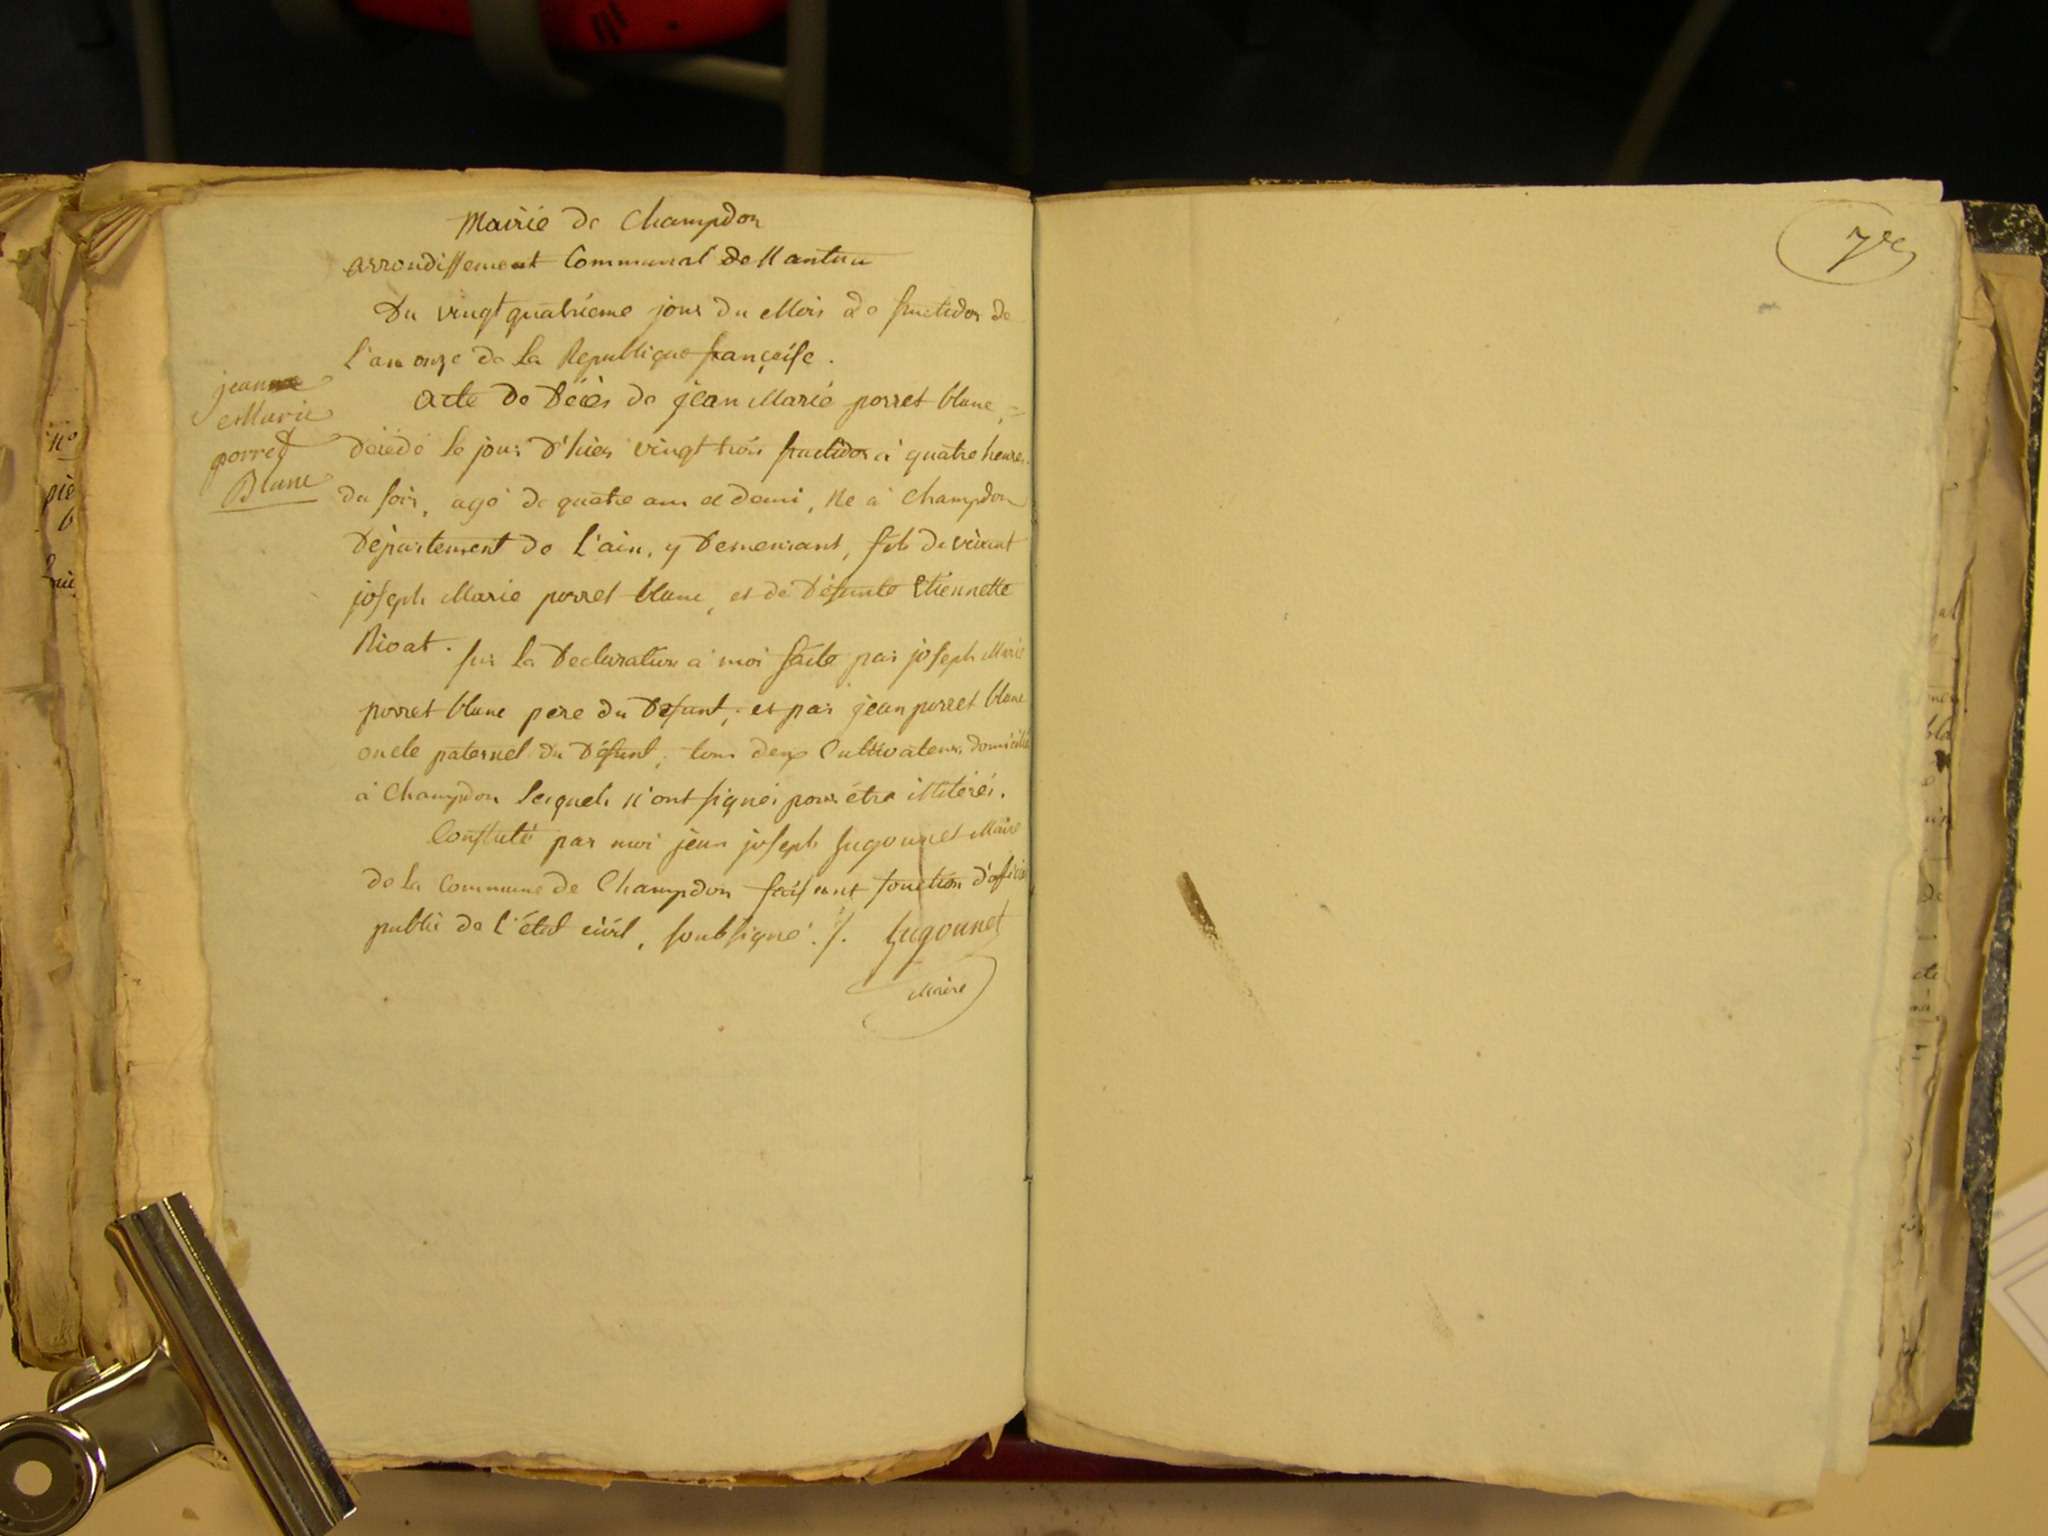 Mairie de Champdor
arrondissement Communal de Nantua
Du vingt quatrieme jour du Mois de fructidor de
L'an onze de La Republique françoise.
jean
Marie
porret
Blanc
acte de Décès de jean Marie porret blanc,
décédé le jour d'hier vingt trois fructidor à quatre heures
du soir, agé de quatre ans et demi, Né à Champdor
Département de L'ain, y Demeurant, fils de vivant
joseph Marie porret blanc, et de Défunte Etiennette
Rivat.
sur La Declaration à moi faite par joseph Marie
porret blanc pere du Défunt, et par jean porret blanc
oncle paternel du Défunt, tous deux Cultivateurs domiciliés
à Champdor Lesquels n'ont signés pour être illiterés.
Constaté par moi jean joseph Jugounet Maire
de la Commune de Champdor faisant fonction d'officier
public de L'état civil, soubsigné ./. Jugounet
Maire
7e
n°